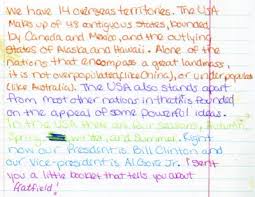 We have 14 overseas territories. The USA
Maks up of 48 contiguous states, bounded
by Canada and Mexico, and the outlying
States of Alaska and Hawaii. Alone of the
nations that encompass a great landmass,
it is not overpopulated (like China), or underpopulated
(like Australia). The USA also stands apart
from most other nations in that it is founded
on the appeal of some powerful ideas.
In the USA there are four seasons, Autumn,
Spring, Winter, and Summer. Right
now our President is Bill Clinton and
our Vice-president is Al Gore Jr. I sent
you a little booklet that tells you about
Hatfield!